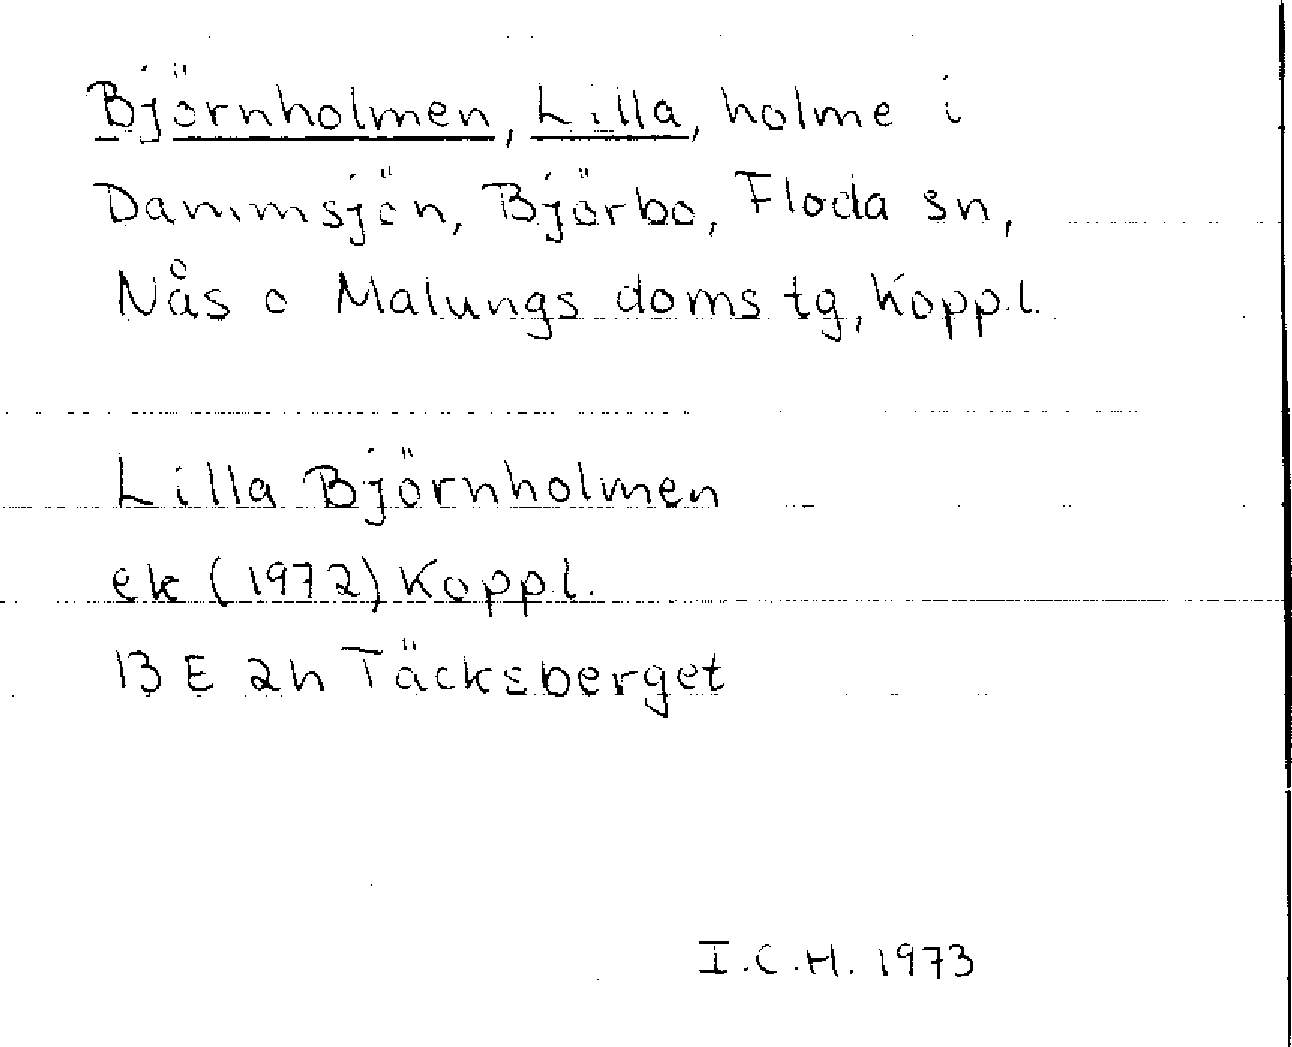 Björnholmen, Lilla, holme i
Dammsjön, Björbo, Floda sn,
Nås o Malungs doms tg, Koppl.
Lilla Björnholmen
ek (1972) Koppl.
13 E 2h Täcksberget
I.C.H. 1973